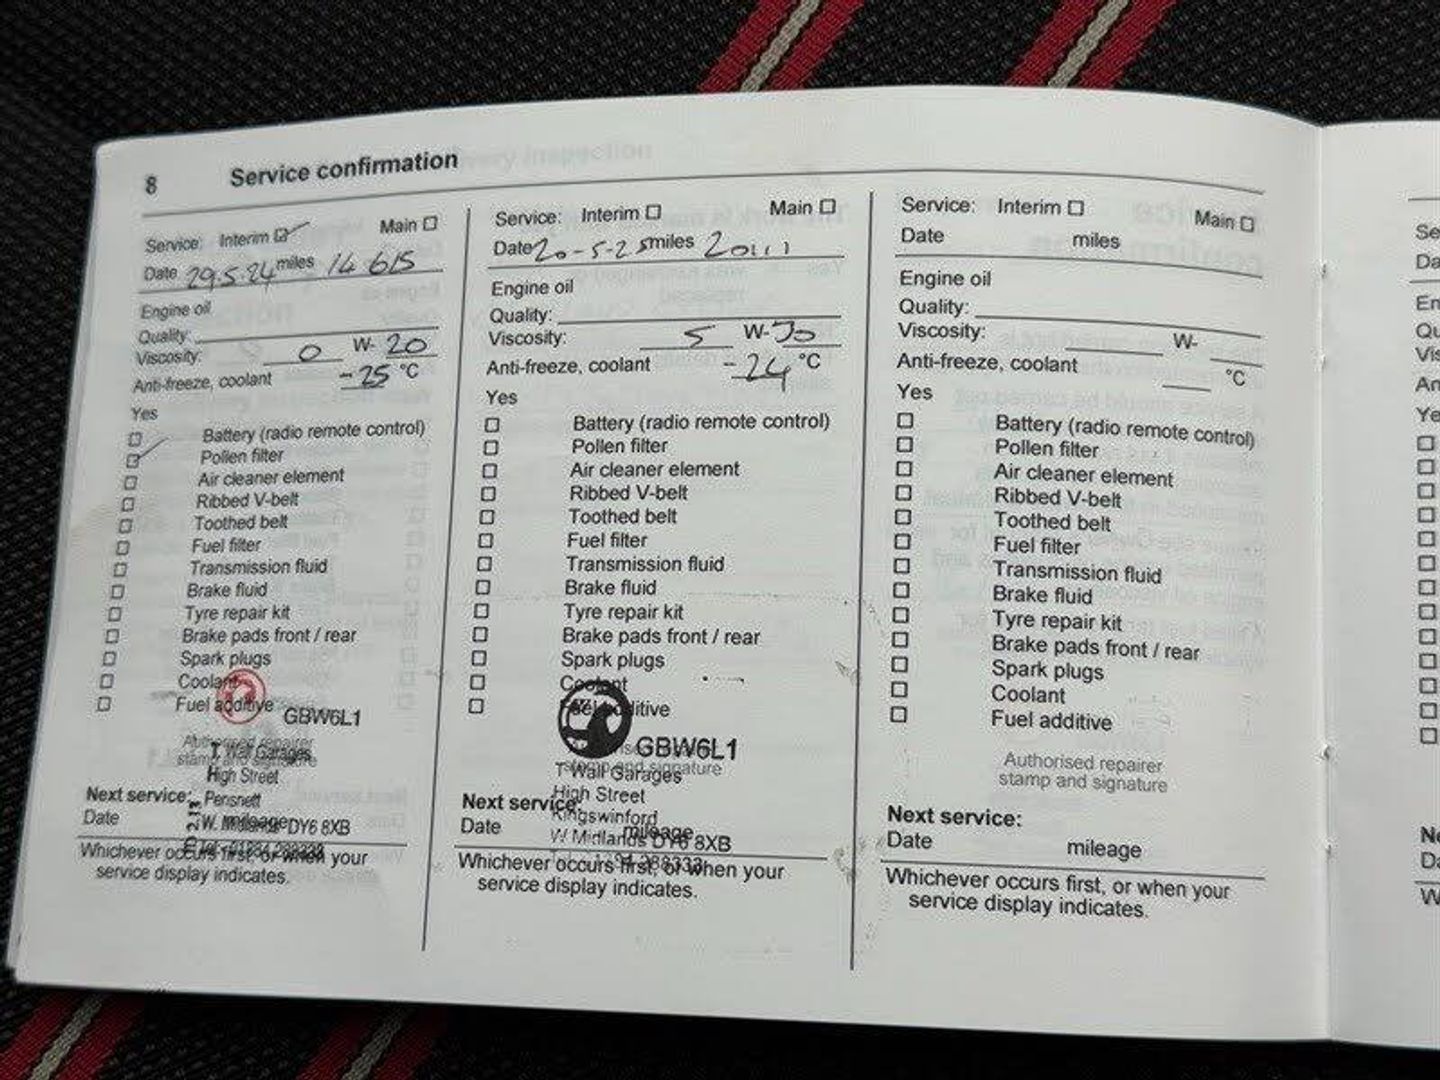 8 Service confirmation
Service: Interim Main
Date 29.5.24 miles 14 615
Engine oil
Quality:
Viscosity: 0 W- 20
Anti-freeze, coolant -25 °C
Yes
Battery (radio remote control)
Pollen filter
Air cleaner element
Ribbed V-belt
Toothed belt
Fuel filter
Transmission fluid
Brake fluid
Tyre repair kit
Brake pads front / rear
Spark plugs
Coolant
Fuel additive
GBW6L1
Authorised repairer
stamp and signature
T. Wall Garages
High Street
Pensnett
W. Midlands DY6 8XB
Next service:
Date mileage
Whichever occurs first, or when your
service display indicates.
Service: Interim Main
Date 20-5-25 miles 20111
Engine oil
Quality:
Viscosity: 5 W-30
Anti-freeze, coolant -24 °C
Yes
Battery (radio remote control)
Pollen filter
Air cleaner element
Ribbed V-belt
Toothed belt
Fuel filter
Transmission fluid
Brake fluid
Tyre repair kit
Brake pads front / rear
Spark plugs
Coolant
Fuel additive
GBW6L1
stamp and signature
T Wall Garages
High Street
Kingswinford
W Midlands DY6 8XB
Next service:
Date mileage
Whichever occurs first, or when your
service display indicates.
Service: Interim Main
Date miles
Engine oil
Quality:
Viscosity: W-
Anti-freeze, coolant °C
Yes
Battery (radio remote control)
Pollen filter
Air cleaner element
Ribbed V-belt
Toothed belt
Fuel filter
Transmission fluid
Brake fluid
Tyre repair kit
Brake pads front / rear
Spark plugs
Coolant
Fuel additive
Authorised repairer
stamp and signature
Next service:
Date mileage
Whichever occurs first, or when your
service display indicates.